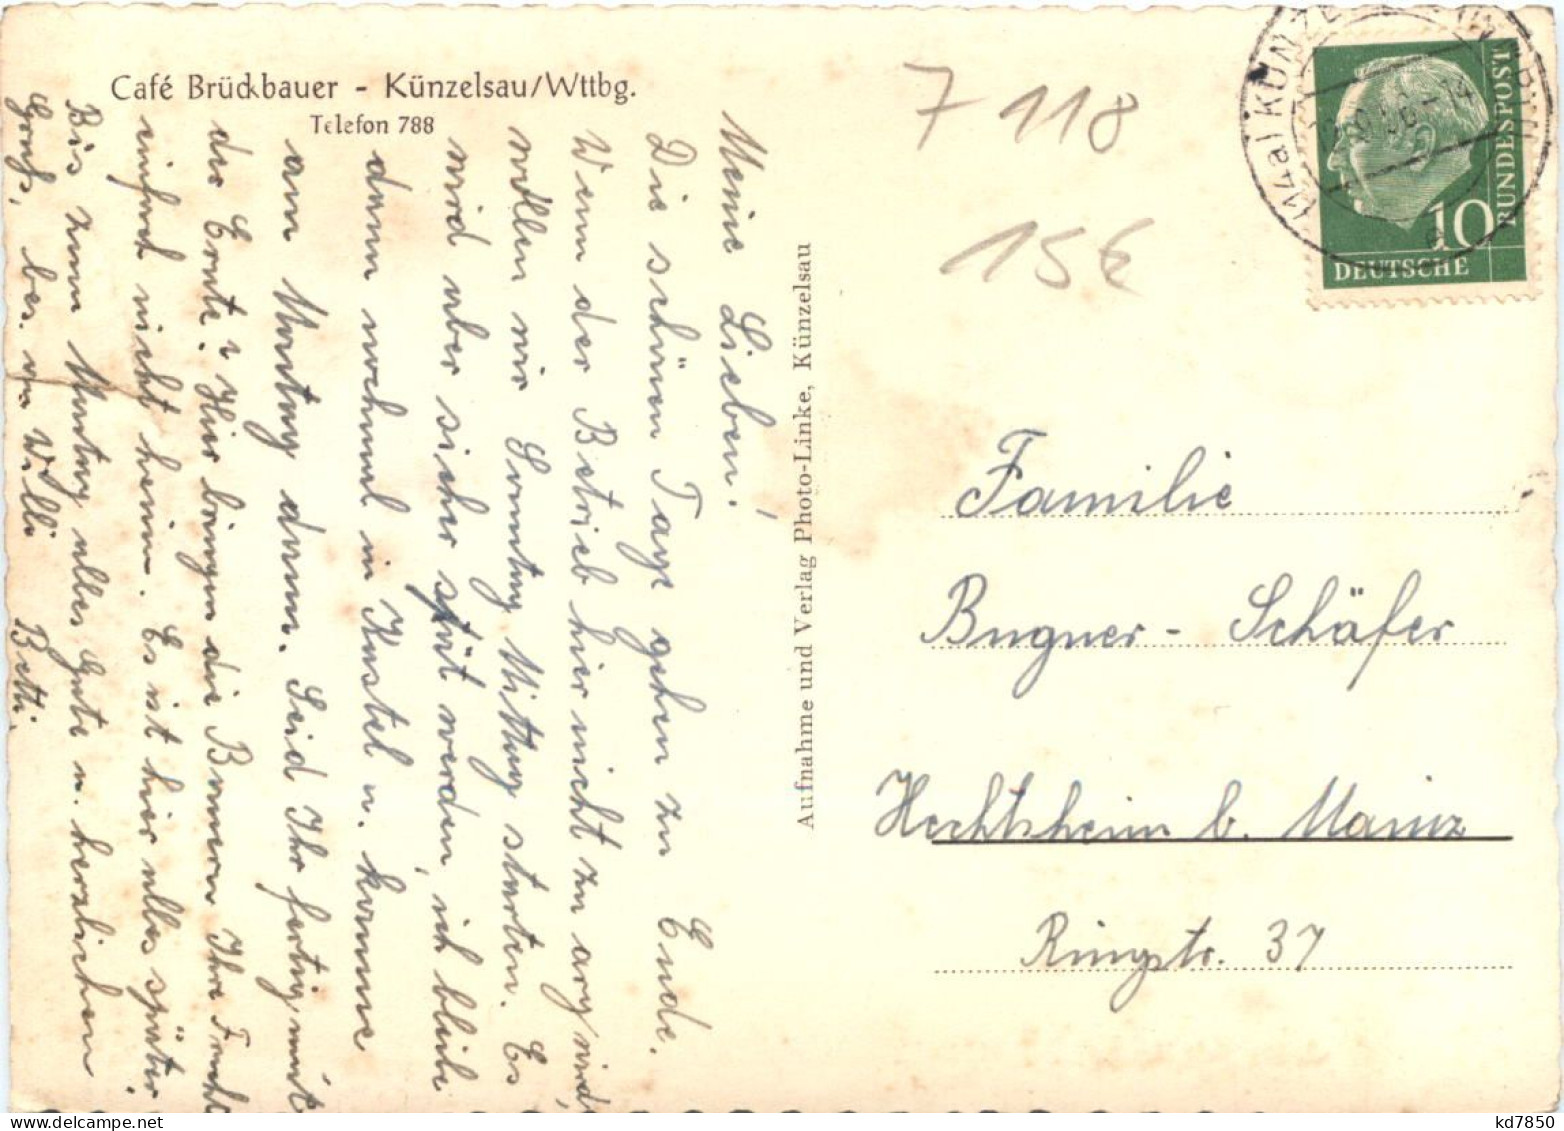 Café Brückbauer - Künzelsau/Wttbg.
Telefon 788
Meine Lieben!
Die schönen Tage gehen zu Ende.
Wenn der Betrieb hier nicht zu arg wird,
wollen wir Sonntag Mittag starten. Es
wird aber sicher spät werden, ich bleibe
dann nochmal in Kastel u. komme
am Montag dann. Seid Ihr fertig mit
der Ernte? Hier bringen die Bauern Ihre
einfach nicht heim. Es ist hier alles später.
Bis zum Montag alles Gute u. herzlichen
Gruß, bes. von Willi Betti.
Aufnahme und Verlag Photo-Linke, Künzelsau
7 118
15€
(14a) KÜNZELSAU
56-14
10
DEUTSCHE
BUNDESPOST
Familie
Bugner - Schäfer
Hechtsheim b. Mainz
Ringstr. 37
kd7850